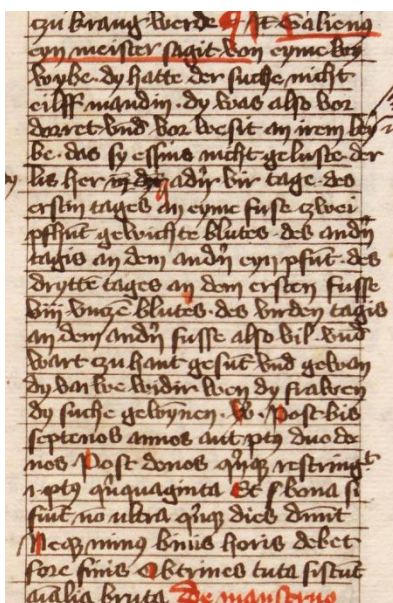 czu krang werde It Galienus
eyn meister sagit von eyme
wybe dy hatte der suche nicht
eilff mandin dy was also vor
dorret vnd vor wesit an irem
be das sy essins nicht geluste der
lis her adir vir tage des
erstin tages an eyme fuse czwei
pfhunt gewichte blutes des andirn
tagis an dem andirn eyn pfunt des
drytte tages an dem ersten fusse
viii vncze blutes des virden tagis
an dem andirn fusse also vil vnd
wart czu hant gesunt vnd gewan
dy varwe widir wen dy frawen
dy suche gewynnen Post bis
septenos annos aut duode
nos Post donos restringt
quinquaginta Et bona si
fiunt no ultra dies
Neq minus binis horis debet
fore finis tuta sistunt
bruta De menstruo